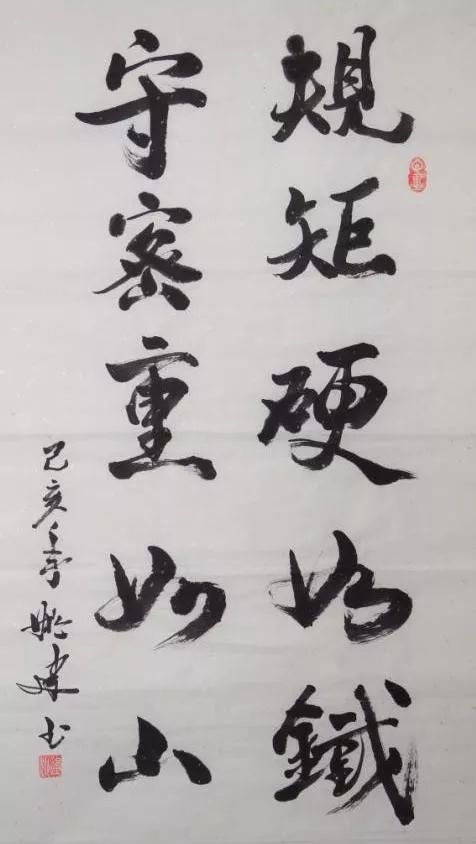 規矩硬如鐵
守密重如山
己亥 建书